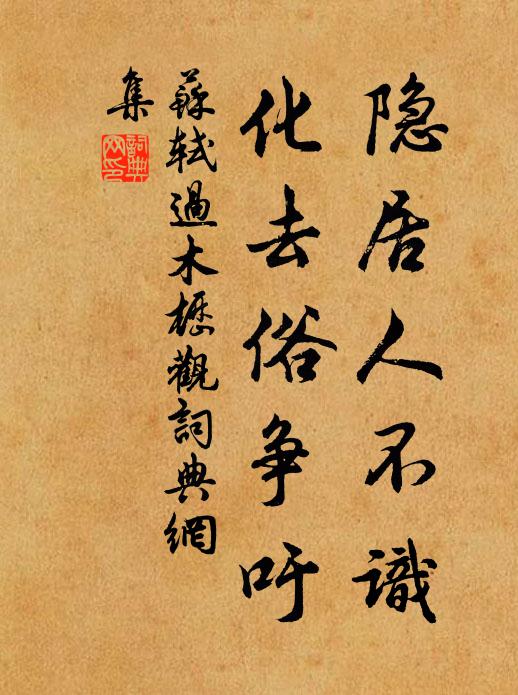 隐居人不識
化去俗争吁
蘇軾過木櫪觀詞典網
集
詞典
网印